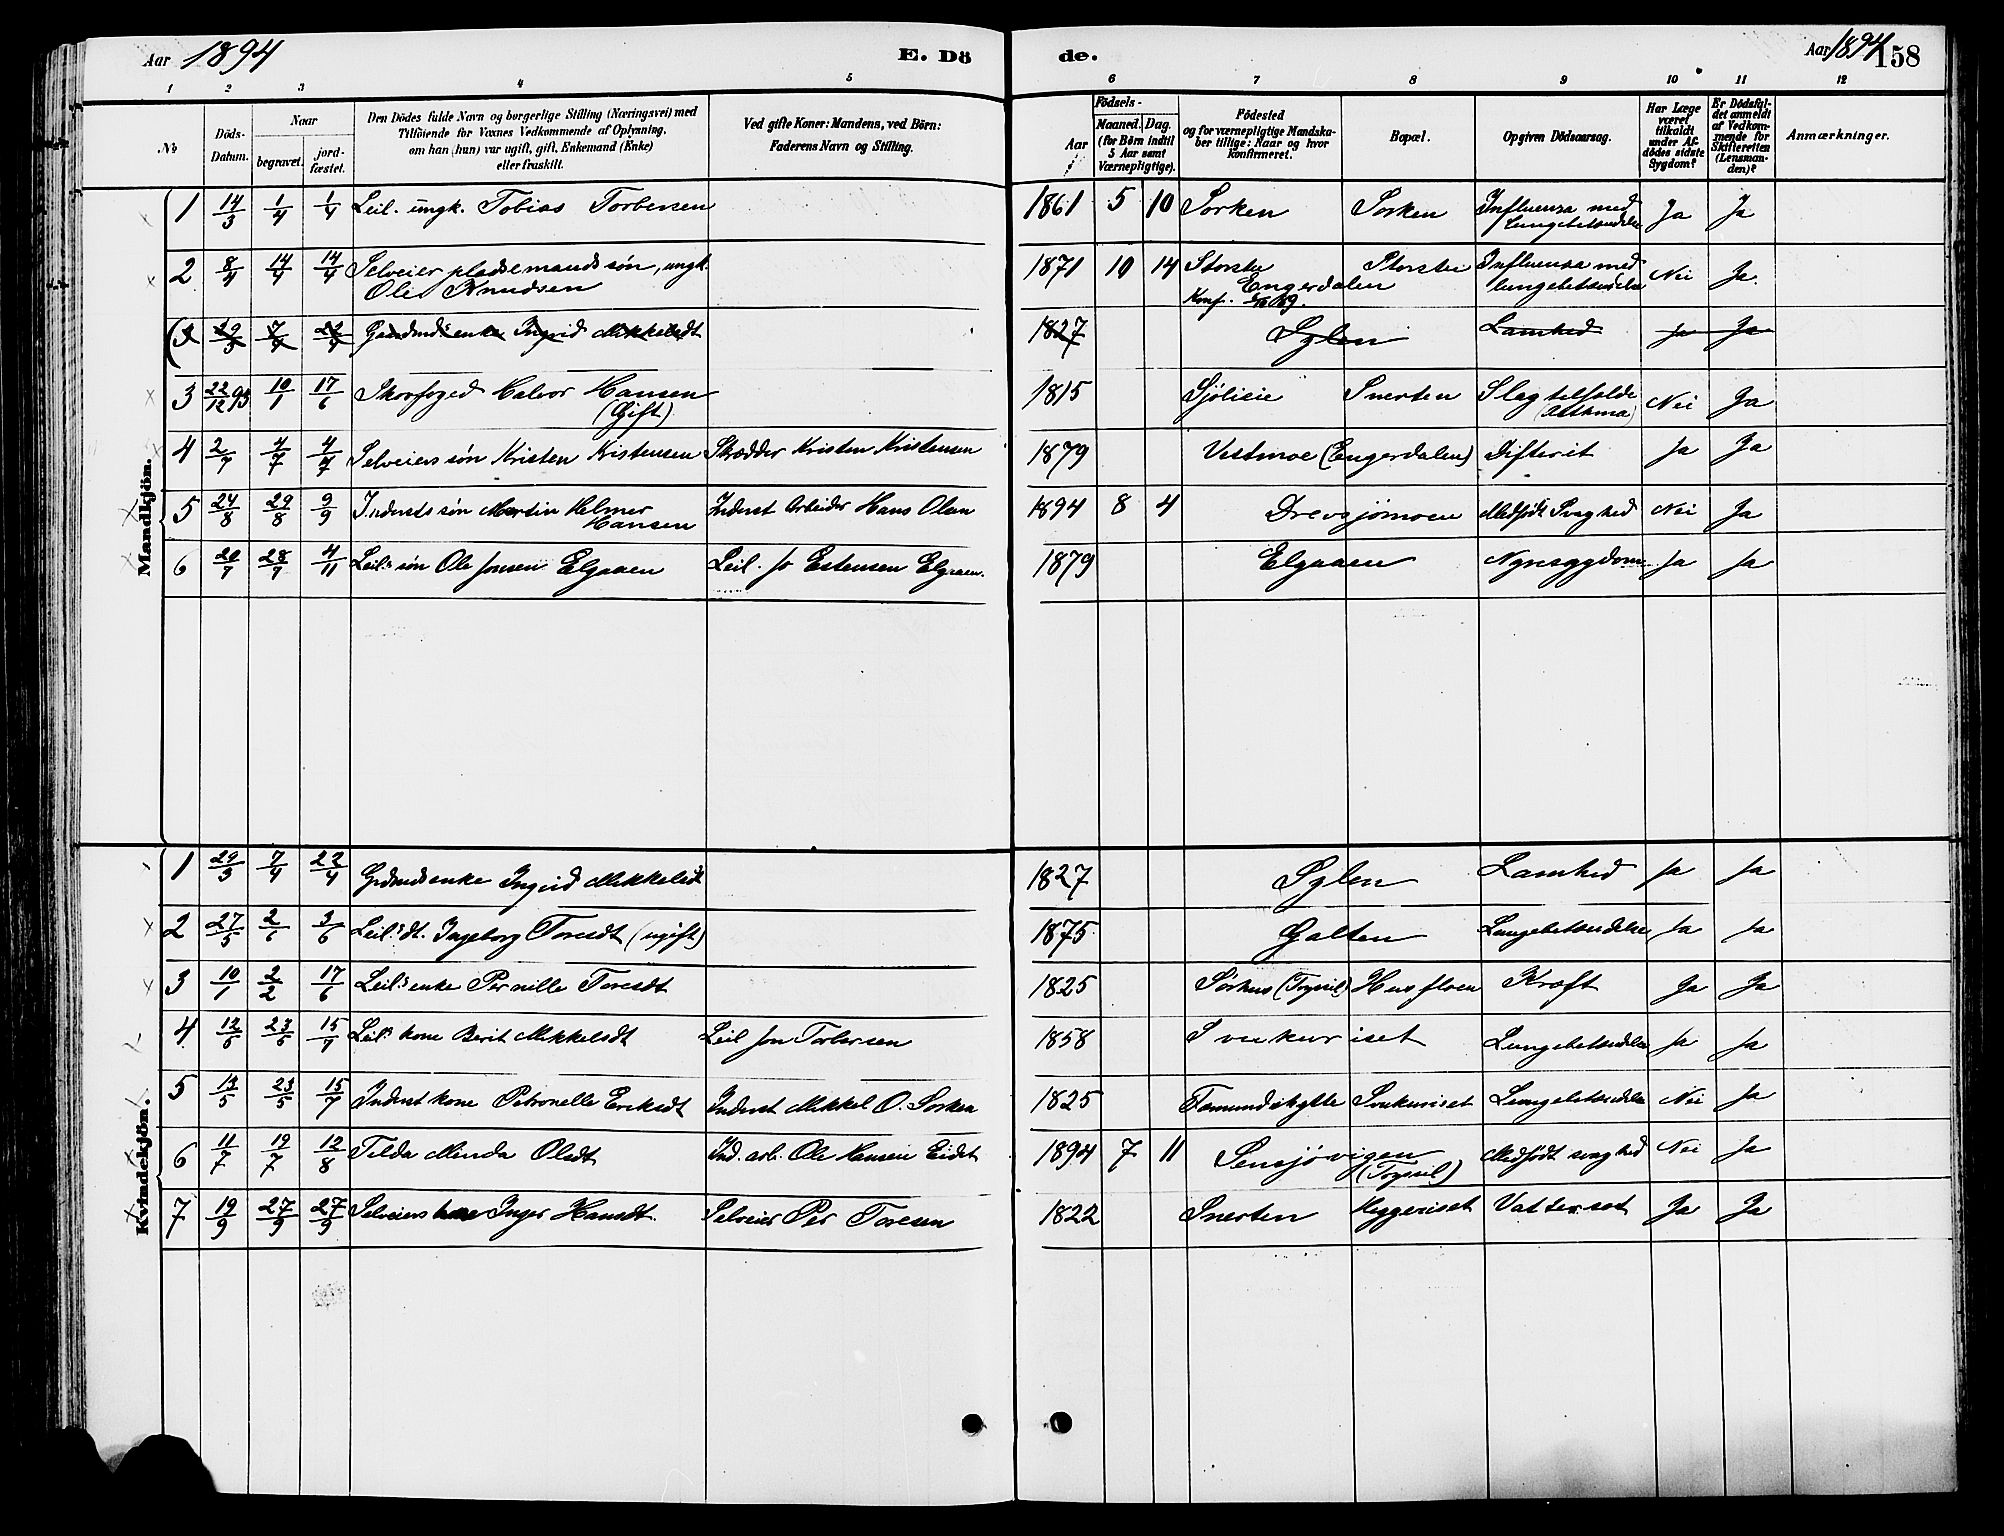 Aar 1894 E. Dö de. Aar 1894 158
1 2 3 4 5 6 7 8 9 10 11 12
№ Döds-Datum. Naar begravet. jord-fæstet. Den Dödes fulde Navn og borgerlige Stilling (Næringsvei) med
Tilföiende for Voxnes Vedkommende af Oplysning,
om han (hun) var ugift, gift, Enkemand (Enke)
eller fraskilt.
Ved gifte Koner: Mandens, ved Börn:
Faderens Navn og Stilling.
Födsels-
Aar Maaned. Dag.
(for Börn indtil
5 Aar samt
Værnepligtige).
Födested
og for værnepligtige Mandska-
ber tillige: Naar og hvor
konfirmeret.
Bopæl.
Opgiven Dödsaarsag.
Har Læge
været
tilkaldt
under Af-
dödes sidste
Sygdom?
Er Dödsfal-
det anmeldt
af Vedkom-
mende for
Skifteretten
(Lensman-
den)?
Anmærkninger.
Mandkjön.
1 14/3 1/4 1/4 Leil. ungk. Tobias Torbersen 1861 5 10 Sorken Sorken Influenza med Lungebetændelse Ja Ja
2 8/4 14/4 14/4 Selveier pladsemands søn, ungk. 1871 10 14 Storsbe Storsbe Influenza med Nei Ja
Ole Knudsen Engerdalen lungebetændelse
Konf.
(3 29/3 7/4 22/4 Gaardmds enke Ingrid Mikkelsdt 1827 Sylen Lamhed Ja Ja
3 22/12 93 10/1 17/6 Skovfoged Halvor Hansen 1815 Sjølieie Snerten Slagtilfælde Nei Ja
(Gift) (Asthma)
4 2/7 4/7 4/7 Selveiers søn Kristen Kristensen Skrædder Kristen Kristensen 1879 Vestmoe (Engerdalen) Difterit Ja Ja
5 24/8 29/8 9/9 Indersts søn Martin Helmer Inderst Arbeider Hans Olsen 1894 8 4 Drevsjømoen Medfødt Svaghed Nei Ja
Hansen
6 20/7 28/7 4/11 Leil.s søn Ole Jonsen Elgaaen Leil. Jo Estensen Elgaaen. 1879 Elgaaen Nyresygdom Ja Ja
Kvindekjön.
1 29/3 7/4 22/4 Grdmds enke Ingrid Mikkelsdt 1827 Sylen Lamhed Ja Ja
2 27/5 2/6 3/6 Leil.s dt. Ingeborg Toresdt (ugift) 1875 Galten Lungebetændelse Ja Ja
3 10/1 2/2 17/6 Leil.s enke Pernille Toresdt 1825 Sørhus (Trysil) Husfloen Kræft Ja Ja
4 12/5 23/5 15/7 Leil.s kone Berit Mikkelsdt Leil Jon Torbersen 1858 Svukuriset Lungebetændelse Ja Ja
5 13/5 23/5 15/7 Inderst kone Petronelle Eriksdt Inderst Mikkel O. Sorken 1825 Fæmundshytte Svukuriset Lungebetændelse Nei Ja
6 11/7 19/7 12/8 Tilda Minda Olsdt Ind. arb. Ole Hansen Eidet 1894 7 11 Sensjøvigen Medfødt svaghed Nei Ja
(Trysil)
7 19/9 27/9 27/9 Selveiers kone Inger Hansdt. Selveier Per Toresen 1822 Snerten Heggeriset Vattersot Ja Ja